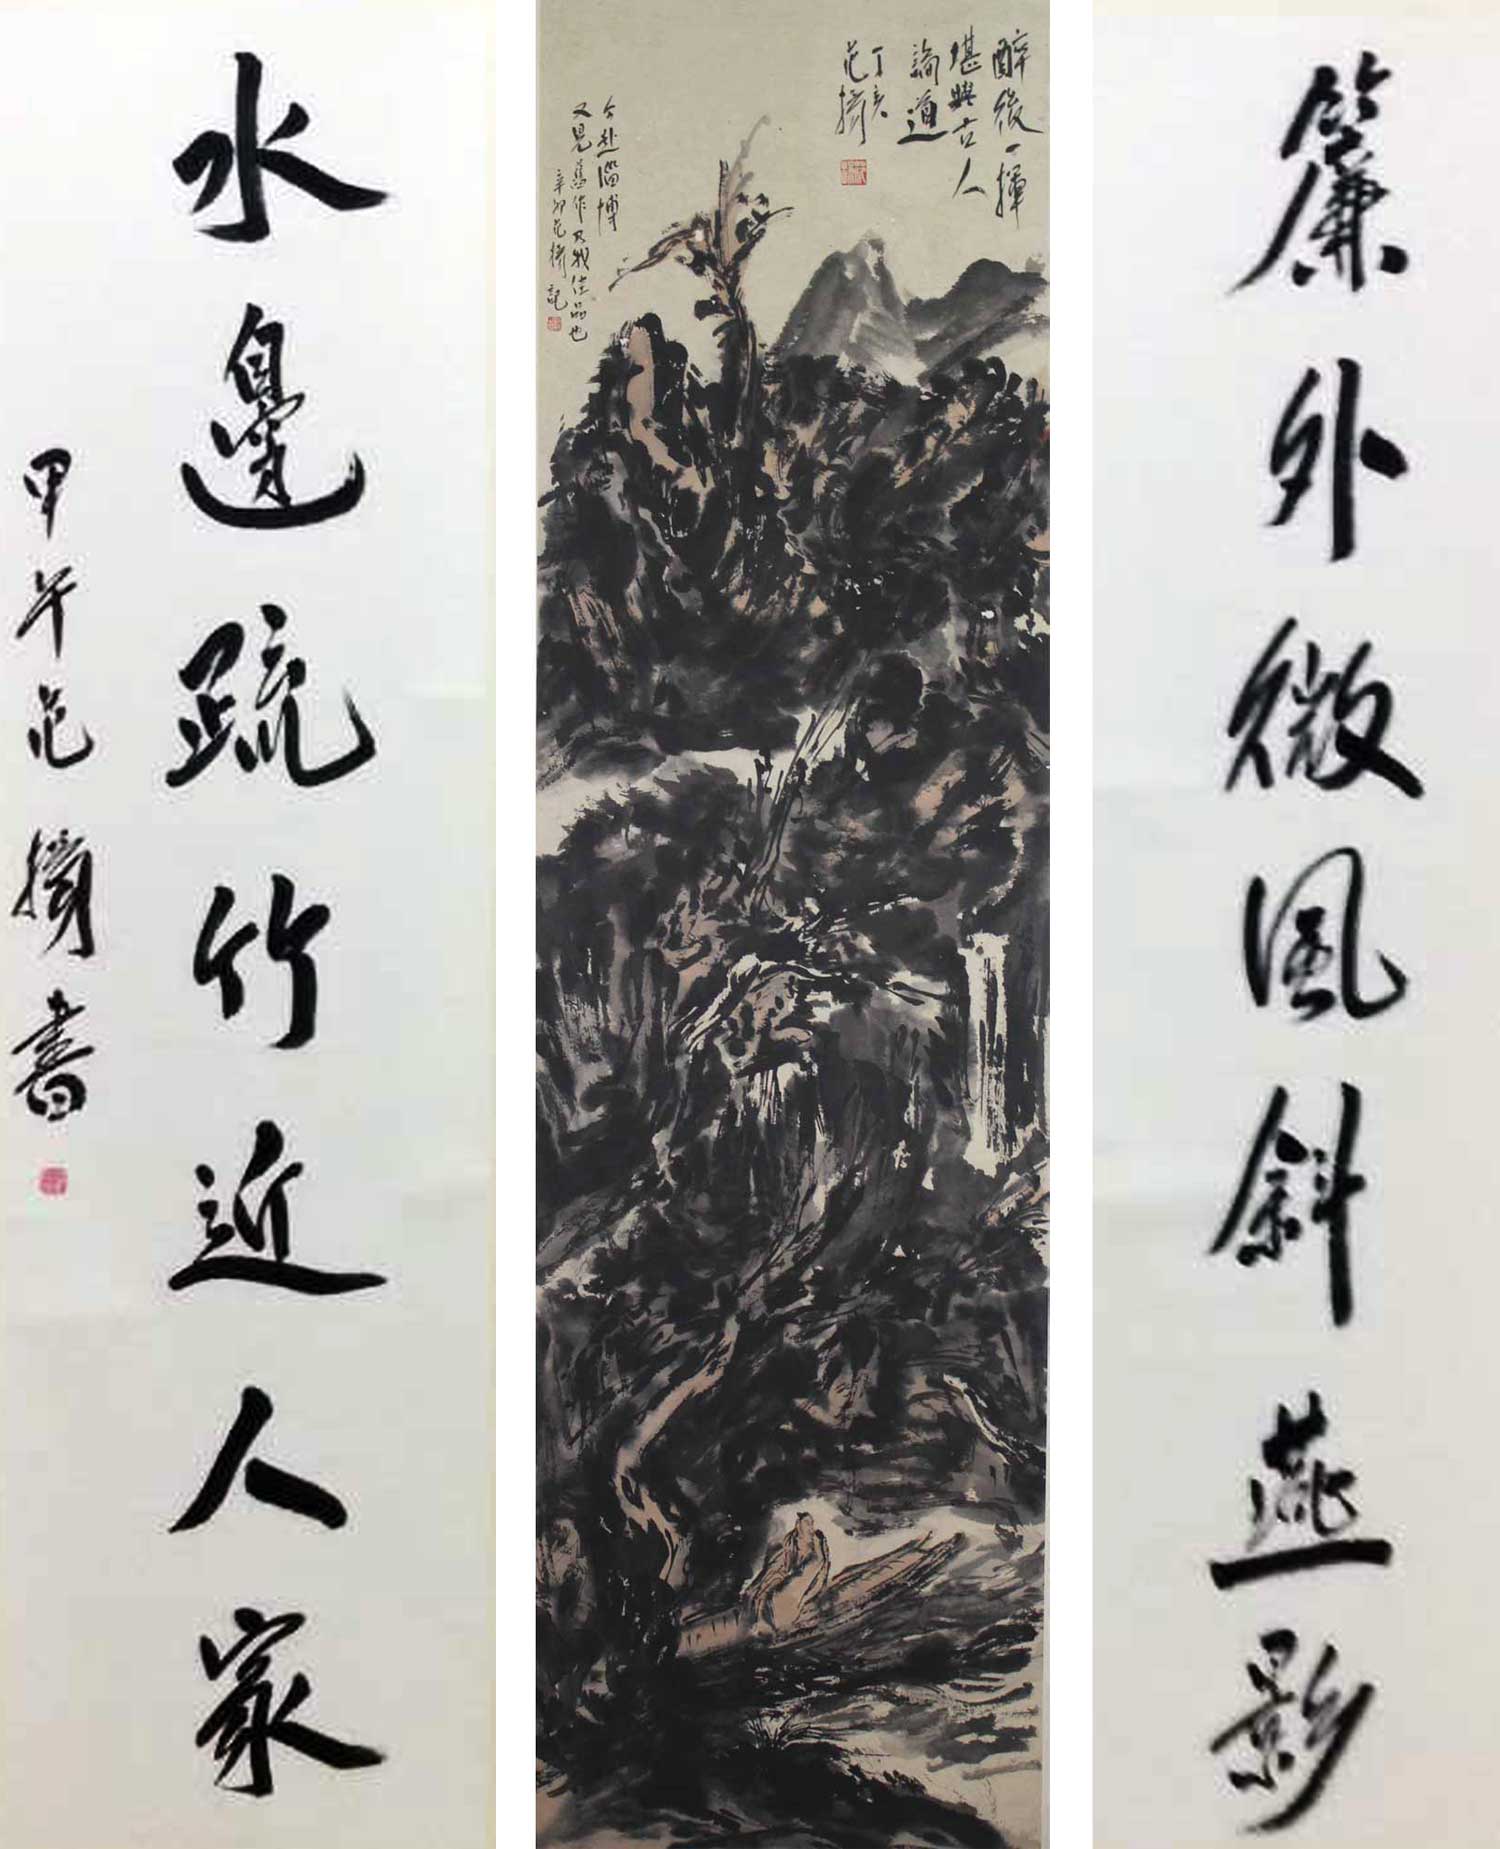 簾外微風斜燕影
醉後一揮
堪與古人
論道
丁亥
范擴
今赴淄博
又見舊作乃我佳品也
辛卯范擴記
水邊疏竹近人家
甲午范擴書